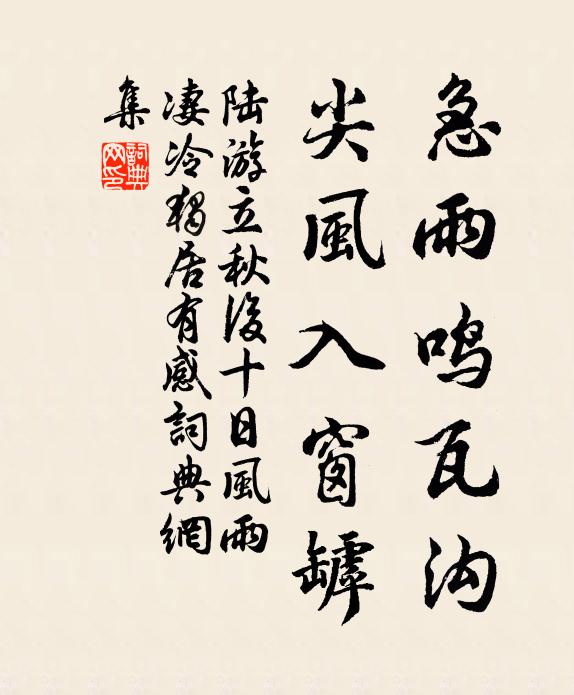 急雨鸣瓦沟
尖風入窗罅
陆游立秋後十日風雨
凄冷独居有感詞典網
集
詞典
网印